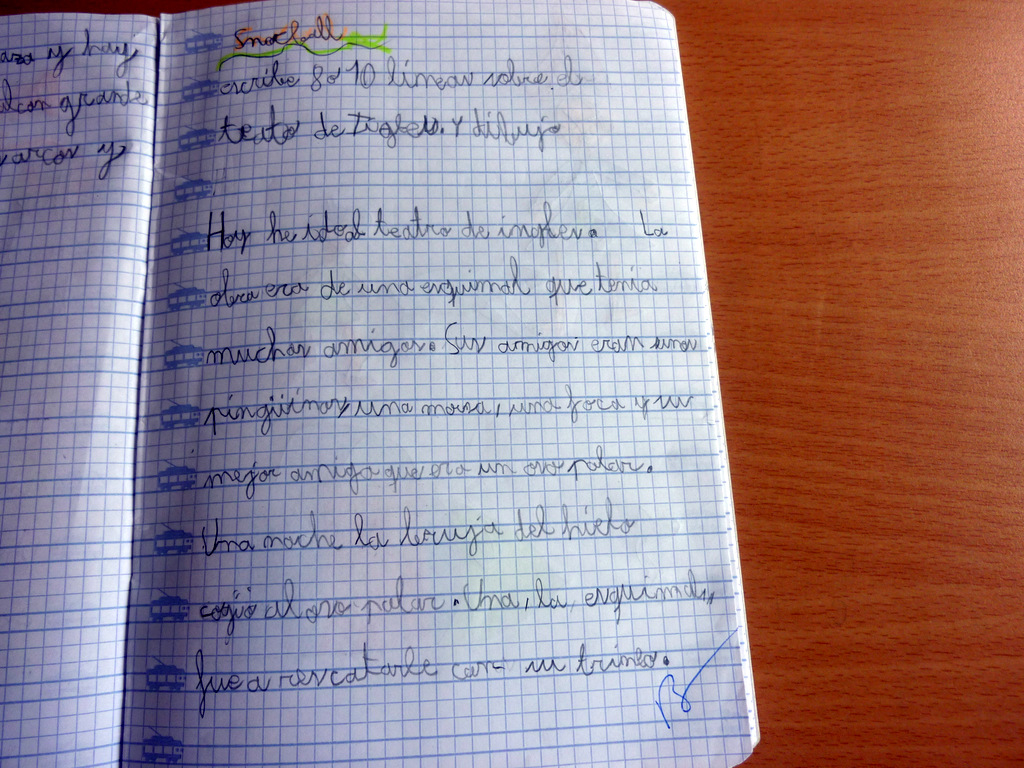 aza y hay
alcon grande
varcos y
Snowball
escribe 8 o 10 lineas sobre el
teatro de Ingles. Y dibujo
Hoy he ido al teatro de ingles. La
obra era de una esquimal que tenia
muchos amigos. Sus amigos eran unos
pingüinos, una morsa, una foca y su
mejor amigo que era un oso polar.
Una noche la bruja del hielo
cogió al oso polar. Una, la, esquimal,,
fue a rescatarle con su trineo.
B